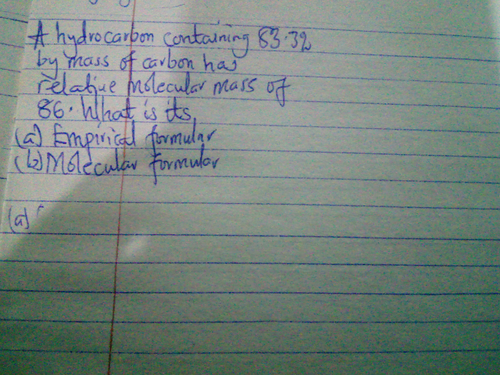 A hydrocarbon containing 83.32
by mass of carbon has
relative molecular mass of
86. What is its
(a) Empirical formular
(b) Molecular formular
(a)